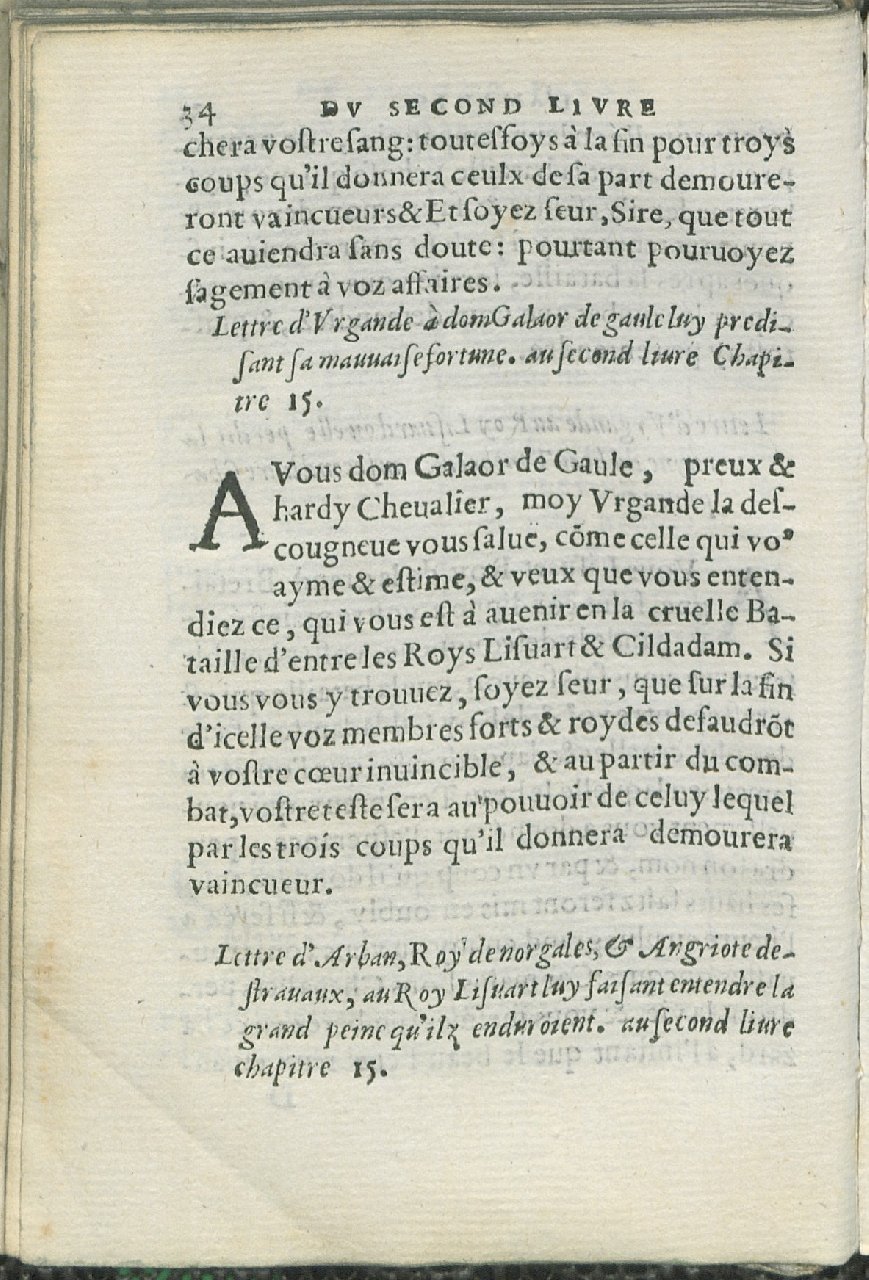 34 DV SECOND LIVRE
chera voſtre ſang: touteſfoys à la fin pour troys
coups qu'il donnera ceulx de ſa part demoure-
ront vaincueurs & Et ſoyez ſeur, Sire, que tout
ce auiendra ſans doute: pourtant pouruoyez
ſagement à voz affaires.
Lettre d'Vrgande à dom Galaor de gaule luy predi-
ſant ſa mauuaiſe fortune. au ſecond liure Chapi-
tre 15.
A Vous dom Galaor de Gaule, preux &
hardy Cheualier, moy Vrgande la deſ-
cougneue vous ſalue, cõme celle qui voꝰ
ayme & eſtime, & veux que vous enten-
diez ce, qui vous eſt à auenir en la cruelle Ba-
taille d'entre les Roys Liſuart & Cildadam. Si
vous vous y trouuez, ſoyez ſeur, que ſur la fin
d'icelle voz membres forts & roydes defaudrõt
à voſtre cœur inuincible, & au partir du com-
bat, voſtre teſte ſera au pouuoir de celuy lequel
par les trois coups qu'il donnera demourera
vaincueur.
Lettre d'Arban, Roy de norgales, & Angriote de-
ſtrauaux, au Roy Liſuart luy faiſant entendre la
grand peine qu'ilz enduroient. au ſecond liure
chapitre 15.